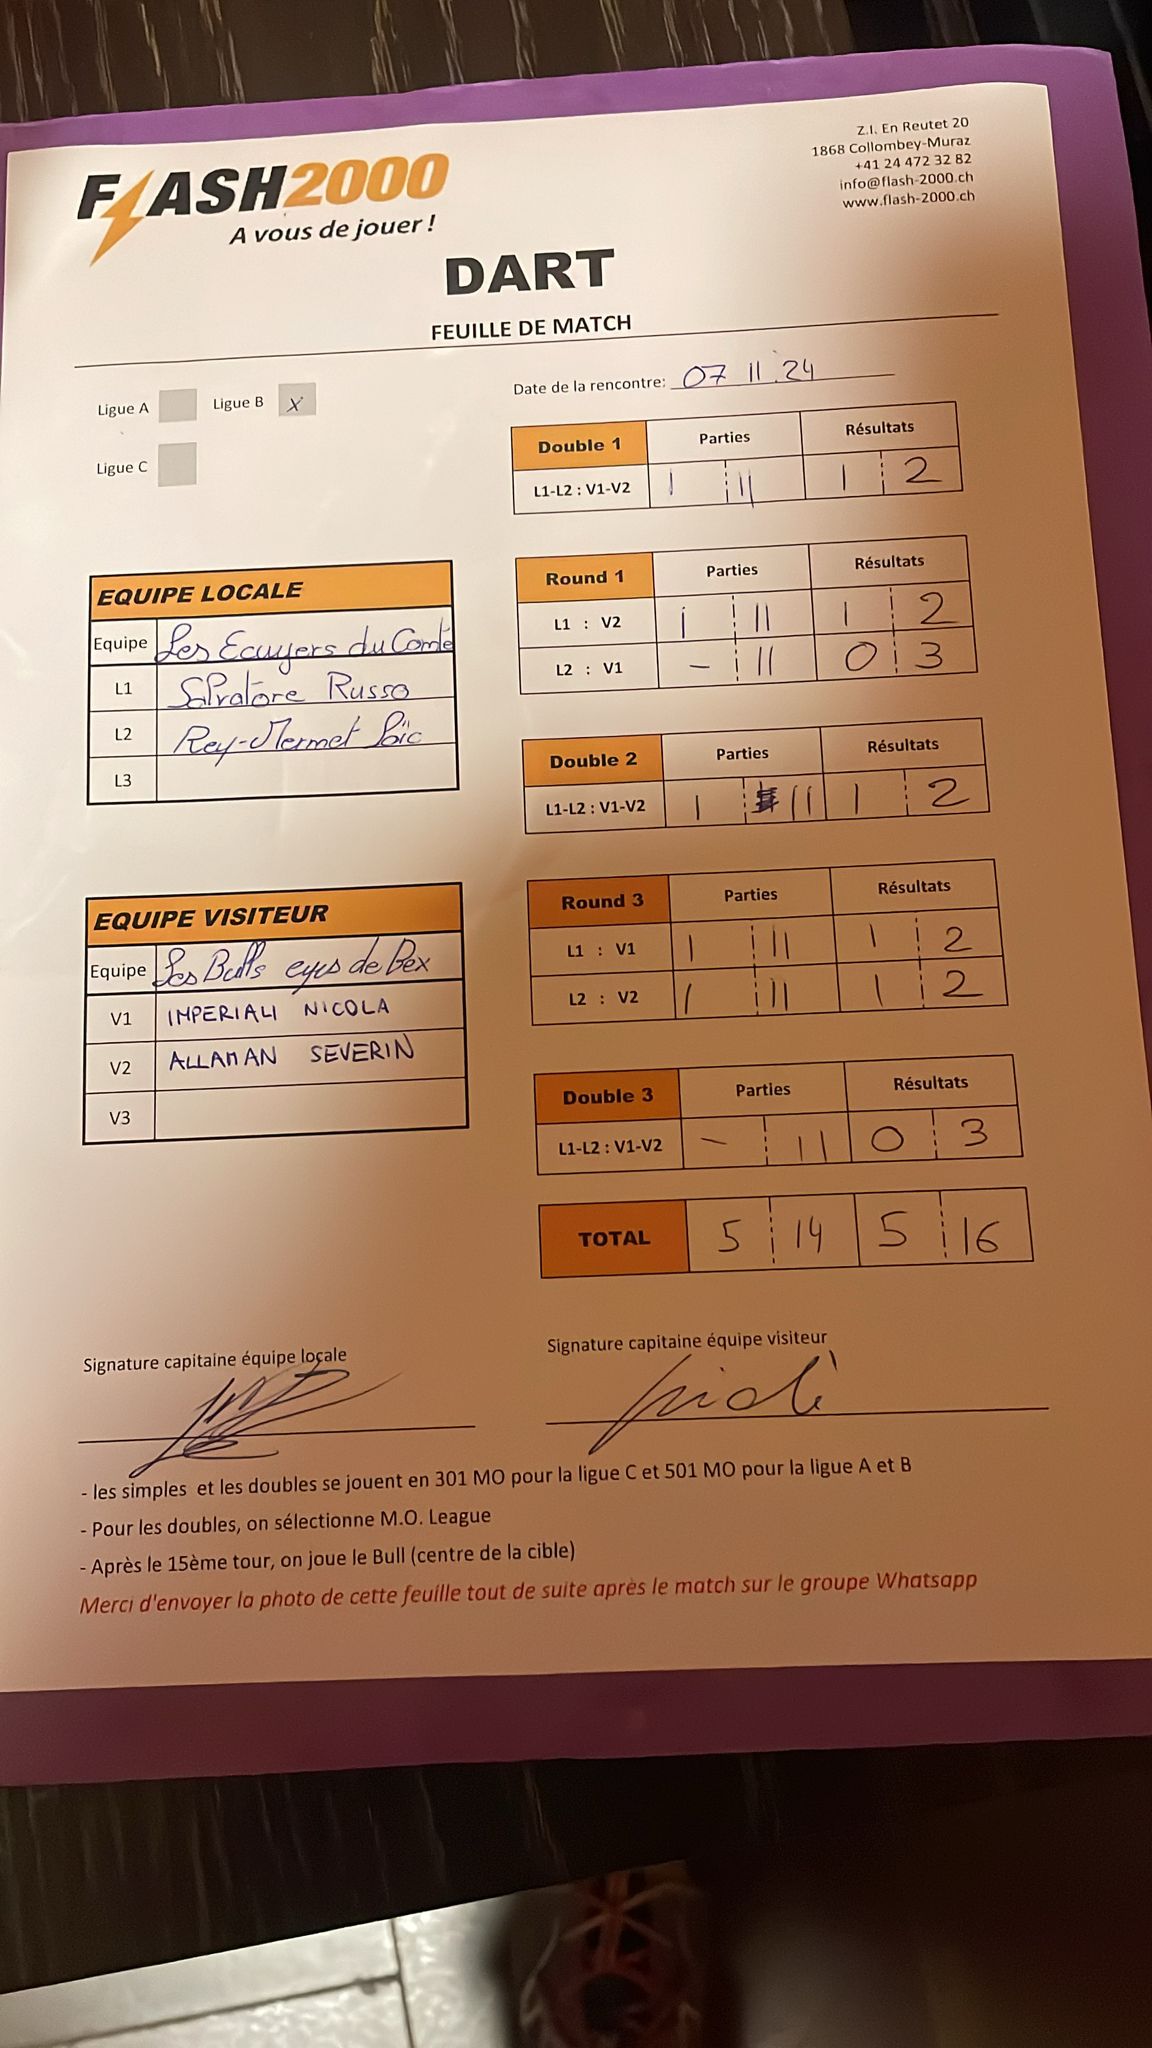 FLASH2000
A vous de jouer !
Z.I. En Reutet 20
1868 Collombey-Muraz
+41 24 472 32 82
info@flash-2000.ch
www.flash-2000.ch
DART
FEUILLE DE MATCH
Ligue A Ligue B X
Ligue C
Date de la rencontre: 07 11 24
Double 1 Parties Résultats
L1-L2 : V1-V2 I II 1 2
EQUIPE LOCALE
Equipe Les Ecuyers du Comte
L1 Salvatore Russo
L2 Rey-Mermet Loïc
L3
Round 1 Parties Résultats
L1 : V2 I II 1 2
L2 : V1 - II 0 3
Double 2 Parties Résultats
L1-L2 : V1-V2 I II 1 2
EQUIPE VISITEUR
Equipe Les Bulls eyes de Bex
V1 IMPERIALI NICOLA
V2 ALLAMAN SEVERIN
V3
Round 3 Parties Résultats
L1 : V1 I II 1 2
L2 : V2 I II 1 2
Double 3 Parties Résultats
L1-L2 : V1-V2 - II 0 3
TOTAL 5 14 5 16
Signature capitaine équipe locale
Signature capitaine équipe visiteur
- les simples et les doubles se jouent en 301 MO pour la ligue C et 501 MO pour la ligue A et B
- Pour les doubles, on sélectionne M.O. League
- Après le 15ème tour, on joue le Bull (centre de la cible)
Merci d'envoyer la photo de cette feuille tout de suite après le match sur le groupe Whatsapp